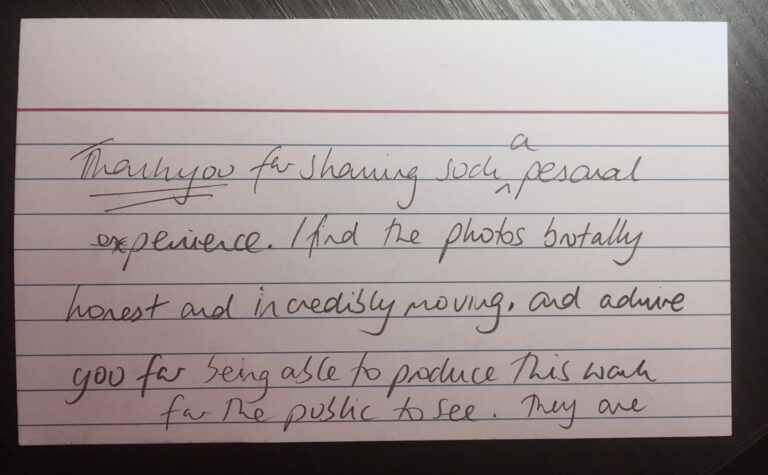 Thankyou for sharing such a pesonal
experience. I find the photos brutally
honest and incredibly moving, and admire
you for being able to produce this work
for the public to see. They are